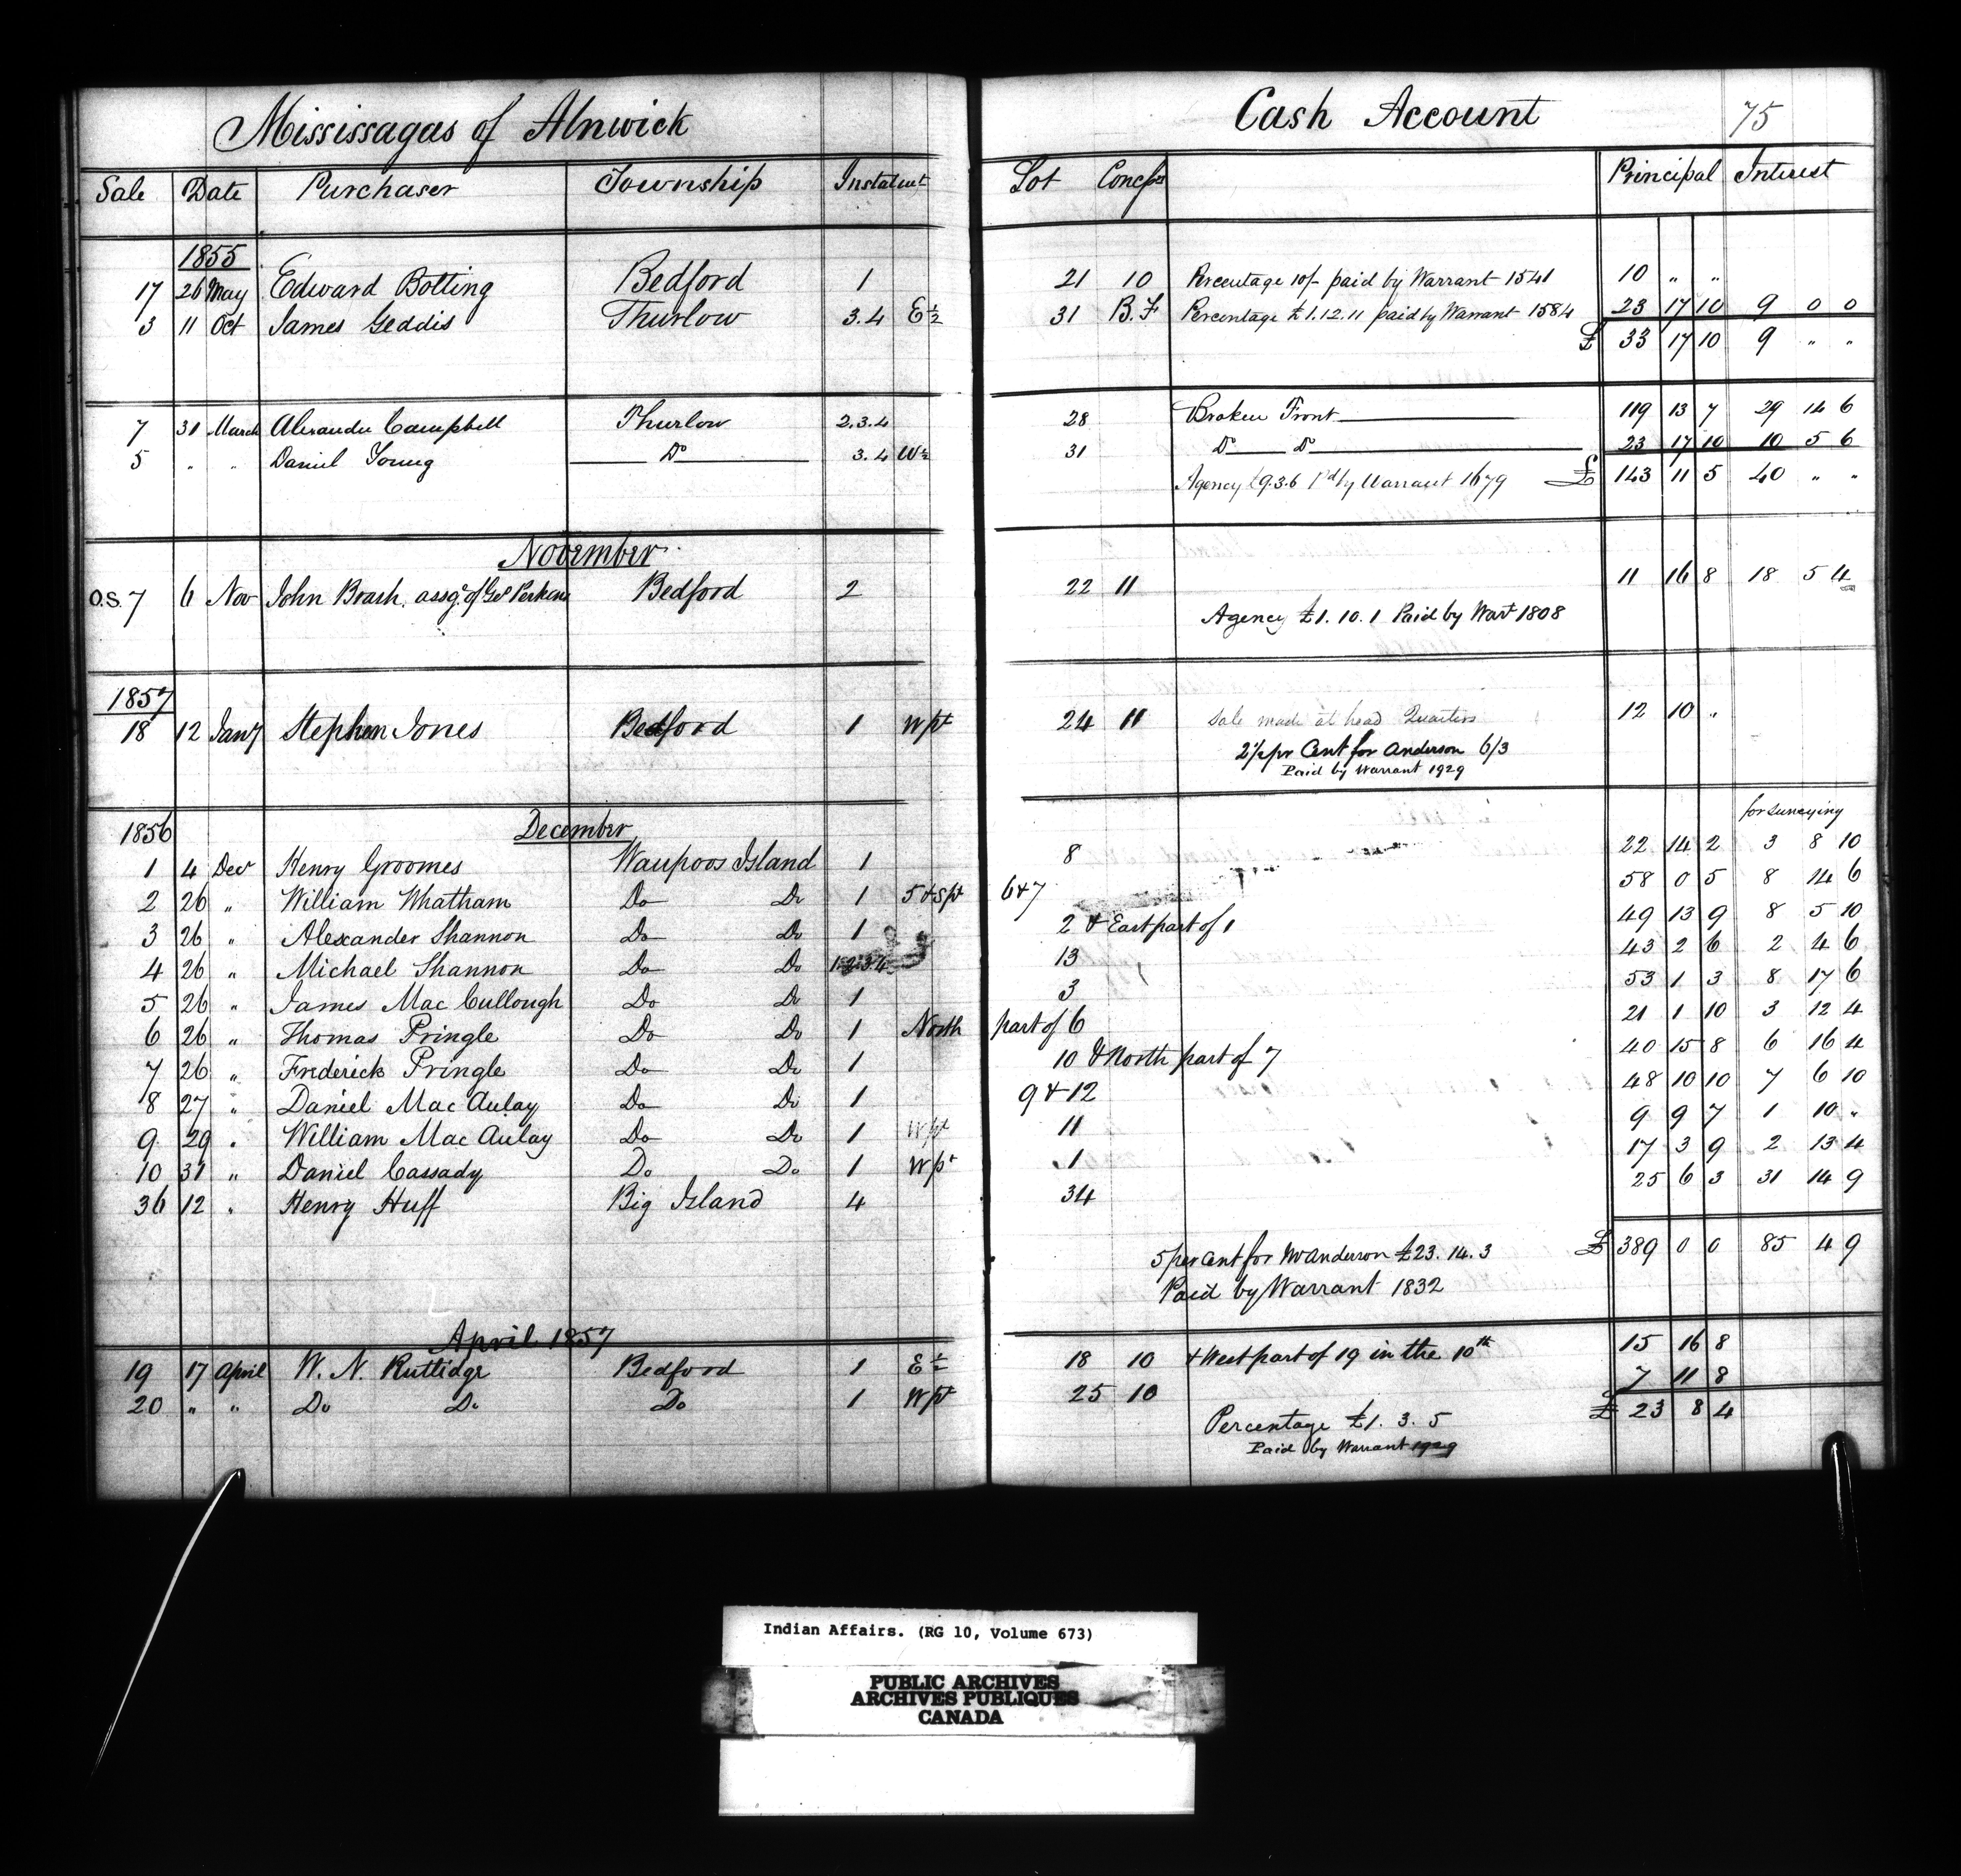 Mississagas of Alnwick Cash Account 75
Sale Date Purchaser Township Instalmt Lot Concssn Principal Interest
1855
17 26 May Edward Botting Bedford 1 21 10 Percentage 10/- paid by Warrant 1541 10 " "
3 11 Oct James Geddis Thurlow 3.4 E ½ 31 B.F Percentage £1.12.11 paid by Warrant 1584 23 17 10 9 0 0
£ 33 17 10 9 " "
7 31 March Alexander Campbell Thurlow 2.3.4 28 Broken Front 119 13 7 29 14 6
5 " " Daniel Young Do 3.4 W ½ 31 Do Do 23 17 10 10 5 6
Agency £9.3.6 Pd by Warrant 1679 £ 143 11 5 40 " "
November
O.S. 7 6 Nov John Brash, assge of Geo Perkins Bedford 2 22 11 11 16 8 18 5 4
Agency £1.10.1 Paid by Wart 1808
1857
18 12 Jany Stephen Jones Bedford 1 W pt 24 11 Sale made at head Quarters 12 10 "
2½ pr Cent for Anderson 6/3
Paid by Warrant 1929
for surveying
1856 December
1 4 Decr Henry Groomes Waupoos Island 1 8 22 14 2 3 8 10
2 26 " William Whatham Do Do 1 5 & S pt 6 & 7 58 0 5 8 14 6
3 26 " Alexander Shannon Do Do 1 2 & East part of 1 49 13 9 8 5 10
4 26 " Michael Shannon Do Do 1.2.3.4 13 43 2 6 2 4 6
5 26 " James Mac Cullough Do Do 1 3 53 1 3 8 17 6
6 26 " Thomas Pringle Do Do 1 North part of 6 21 1 10 3 12 4
7 26 " Frederick Pringle Do Do 1 10 & North part of 7 40 15 8 6 16 4
8 27 " Daniel Mac Aulay Do Do 1 9 & 12 48 10 10 7 6 10
9 29 " William Mac Aulay Do Do 1 W pt 11 9 9 7 1 10 "
10 31 " Daniel Cassady Do Do 1 W pt 1 17 3 9 2 13 4
36 12 " Henry Huff Big Island 4 34 25 6 3 31 14 9
5 per Cent for Mr Anderson £23.14.3 £ 389 0 0 85 4 9
Paid by Warrant 1832
April 1857
19 17 April W. N. Ruttidge Bedford 1 E ½ 18 10 & West part of 19 in the 10th 15 16 8
20 " " Do Do Do 1 W pt 25 10 7 11 8
Percentage £1.3.5 £ 23 8 4
Paid by Warrant 1929
Indian Affairs. (RG 10, Volume 673)
PUBLIC ARCHIVES
ARCHIVES PUBLIQUES
CANADA